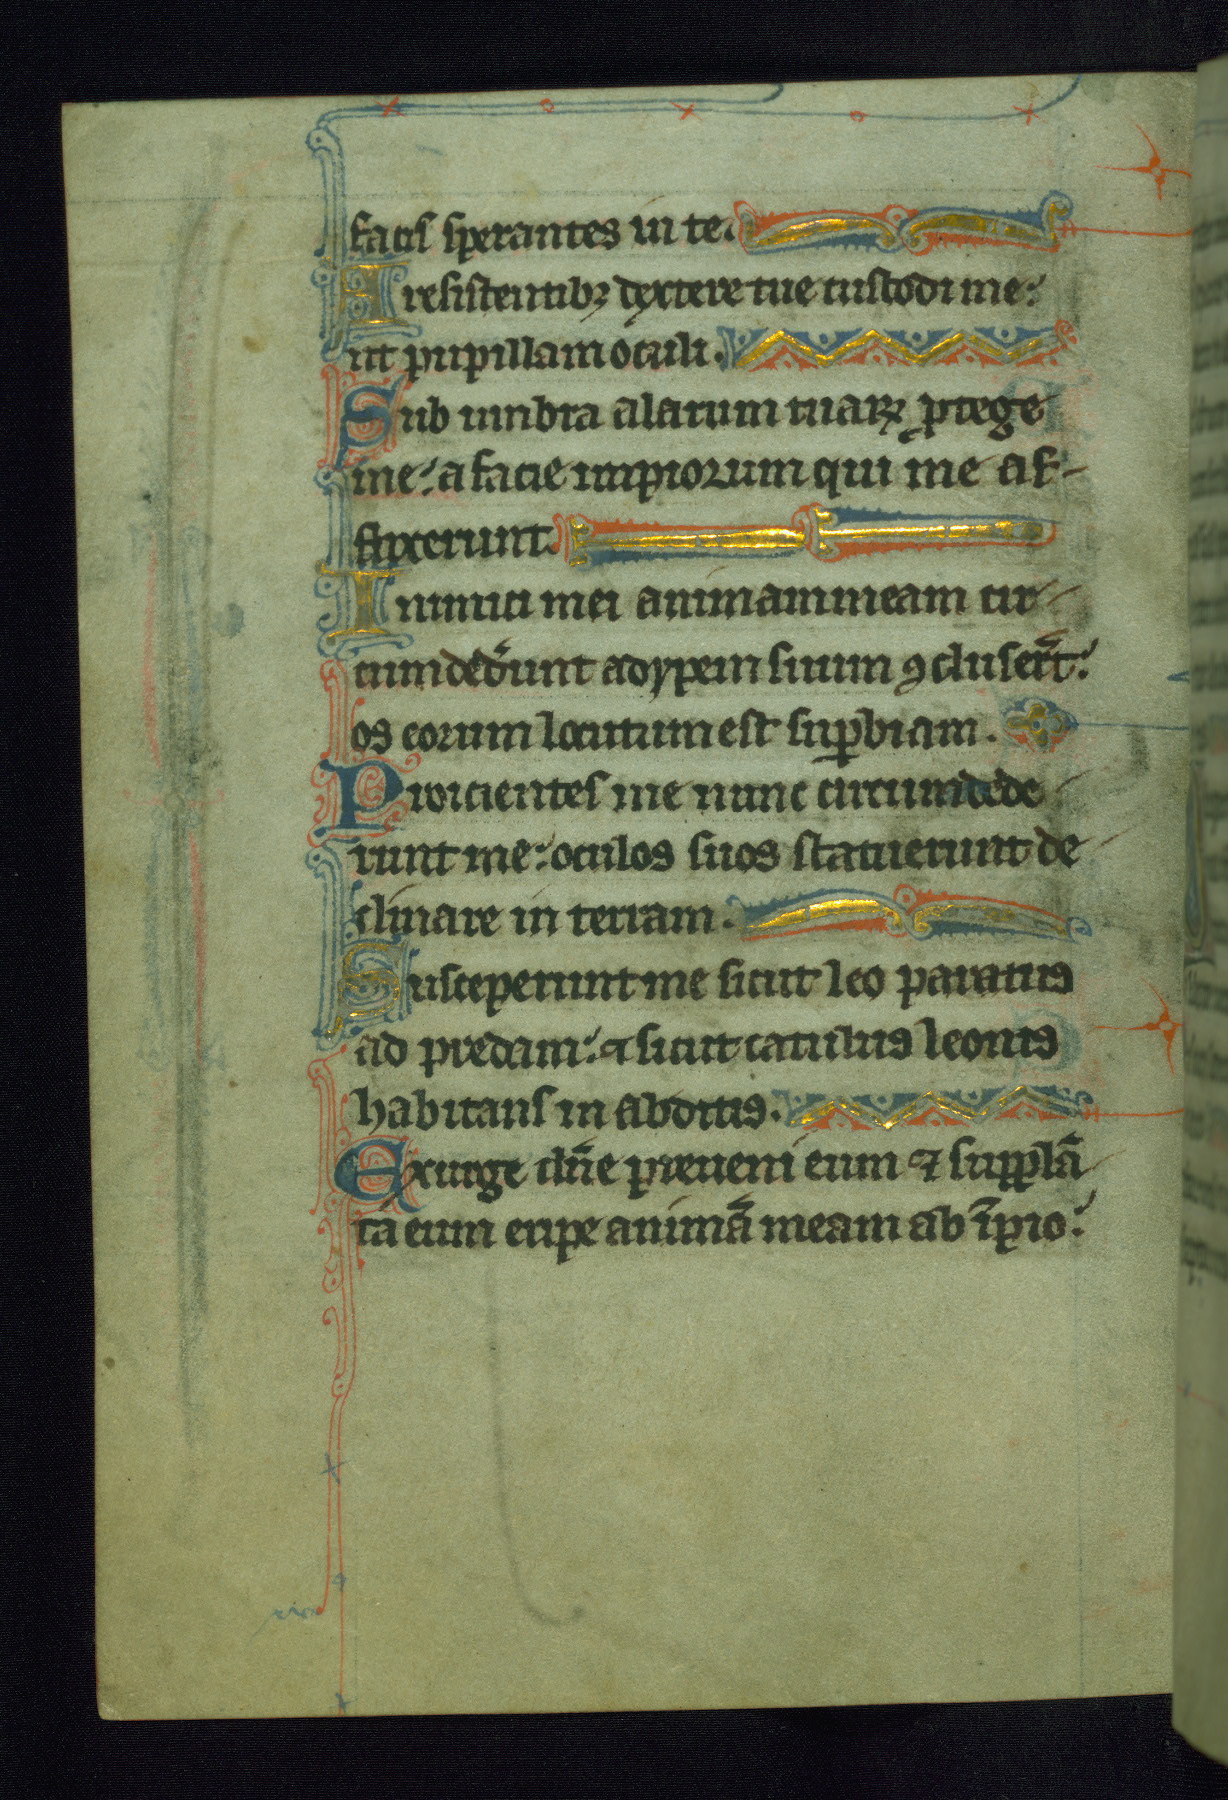 facis sperantes in te.
A resistentibꝫ dextere tue custodi me:
ut pupillam oculi.
Sub umbra alarum tuaꝝ ꝓtege
me: a facie impiorum qui me af-
flixerunt.
Inimici mei animam meam cir
cumded̾unt adypem suum ꝯcluser̄t:
os eorum locutum est suꝑbiam.
Proicientes me nunc circumdede
runt me: oculos suos statuerunt de
clinare in terram.
Susceperunt me sicut leo paratus
ad predam: ⁊ sicut catulus leonis
habitans in abditis.
Exurge dn̄e preueni eum ⁊ supplā
ta eum eripe animā meam ab īpio: